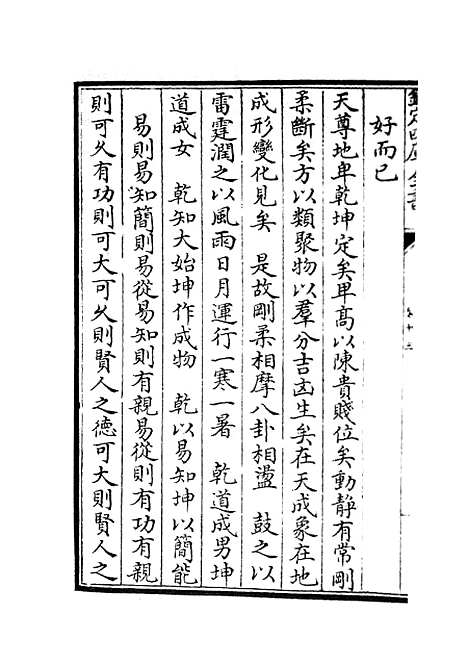 欽定四庫全書
好而已
天尊地卑乾坤定矣卑高以陳貴賤位矣動靜有常剛
柔斷矣方以類聚物以羣分吉凶生矣在天成象在地
成形變化見矣 是故剛柔相摩八卦相盪 鼓之以
雷霆潤之以風雨日月運行一寒一暑 乾道成男坤
道成女 乾知大始坤作成物 乾以易知坤以簡能
易則易知簡則易從易知則有親易從則有功有親
則可久有功則可大可久則賢人之德可大則賢人之